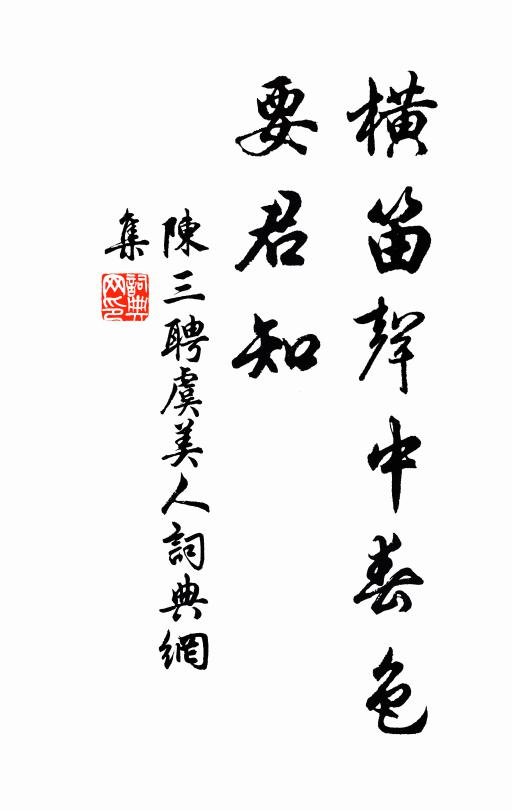 橫笛聲中春色
要君知
陳三聘虞美人詞典網
集
詞典
网印